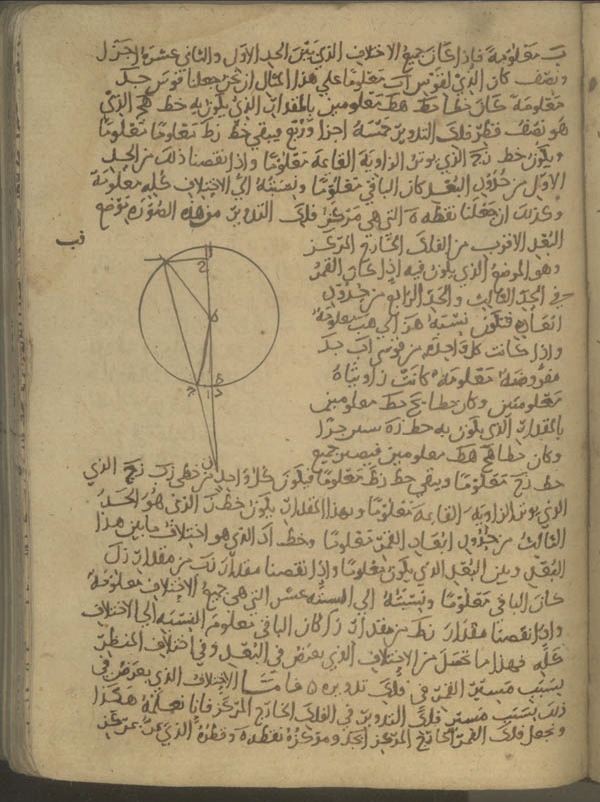 معلومة فاذا كان جميع الاختلاف الذي بين الحد الاول والثاني عشرة اجزا
ونصف كان الذي لقوس اب معلوما على هذا المثال ان نحن جعلنا قوس جد
معلومة كان خطا حط هط معلومين بالمقدار الذي يكون به خط هج الذي
هو نصف قطر فلك التدوير خمسة اجزا وربع ويبقى خط زط معلوما معلوما
ويكون خط زج الذي يوتر الزاوية القائمة معلوما واذا نقصنا ذلك من الحد
الاول من جدول البعد كان الباقي معلوما ونسبته الى الاختلاف كله معلومة
وكذلك ان جعلنا نقطة ه التي هي مركز فلك التدوير من هذه الصورة موضع
البعد الاقرب من الفلك الخارج المركز
وهو الموضع الذي يكون فيه اذا كان القمر
في الحد الثالث والحد الرابع من جدول
ابعاده فتكون نسبة هز الى هب معلومة
واذا كانت كل واحدة من قوسي اب جد
مفروضة معلومة كانت زاوياه
معلومتين وكان خطا حج حط معلومين
بالمقدار الذي يكون به خط زه ستين جزا
وكان خطا هح هط معلومين فيصير جميع
خط زح معلوما ويبقى خط زط معلوما فيكون كل واحد من خطي زب زج الذي
الذي يوتر الزاوية القائمة معلوما وبهذا المقدار يكون خط زد الذي هو الحد
الثالث من جدول ابعاد القمر معلوما وخط اد الذي هو اختلاف ما بين هذا
البعد وبين البعد الذي يكون معلوما واذا نقصنا مقدار زب من مقدار زا
كان الباقي معلوما ونسبته الى الستة عشر التي هي جميع الاختلاف معلومة
واذا نقصنا مقدار زط من مقدار زج كان الباقي معلوم النسبة الى الاختلاف
كله فهذا ما تحصل من الاختلاف الذي يعرض في البعد وفي اختلاف المنظر
بسبب مسير القمر في فلك تدويره فاما الاختلاف الذي يعرض في
ذلك بسبب مسير فلك التدوير في الفلك الخارج المركز فانا نعلمه هكذا
ونجعل فلك القمر الخارج المركز ابجد ومركزه نقطة ه وقطره الذي يمر بمركز